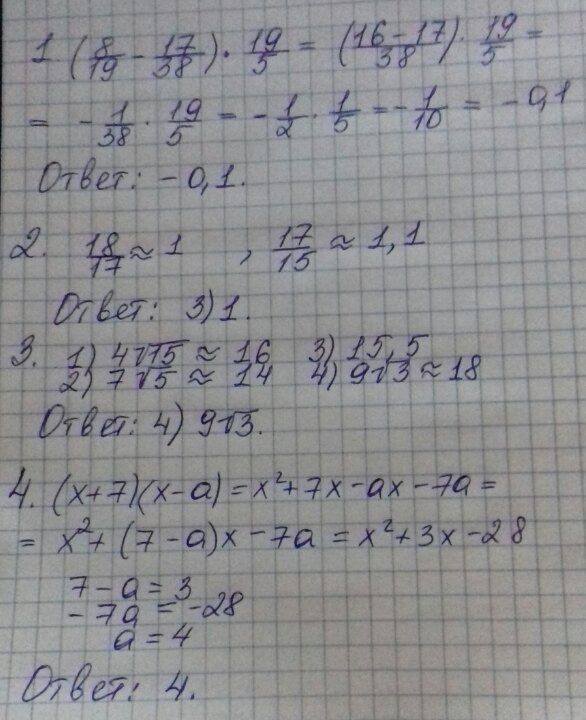 1 (8/19 - 17/38) · 19/5 = (16-17/38) · 19/5 =
= -1/38 · 19/5 = -1/2 · 1/5 = -1/10 = -0,1
Ответ: -0,1.
2. 18/17 ≈ 1 , 17/15 ≈ 1,1
Ответ: 3) 1.
3. 1) 4√15 ≈ 16 3) 15,5
2) 7√5 ≈ 14 4) 9√3 ≈ 18
Ответ: 4) 9√3.
4. (x+7)(x-a) = x²+7x-ax-7a =
= x²+(7-a)x-7a = x²+3x-28
7-a = 3
-7a = -28
a = 4
Ответ: 4.